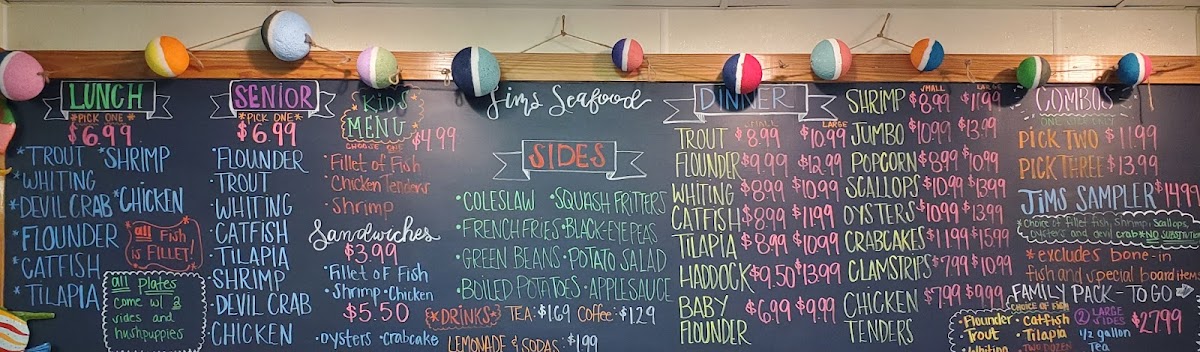 LUNCH
*PICK ONE*
$6.99
*TROUT *SHRIMP
*WHITING
*DEVIL CRAB *CHICKEN
*FLOUNDER
*CATFISH
*TILAPIA
*all Fish
is FILLET!
all plates
come w/ 2
sides and
hushpuppies
SENIOR
*PICK ONE*
$6.99
·FLOUNDER
·TROUT
·WHITING
·CATFISH
·TILAPIA
·SHRIMP
·DEVIL CRAB
·CHICKEN
KIDS
MENU
CHOOSE ONE
$4.99
·Fillet of Fish
·Chicken Tenders
·Shrimp
Sandwiches
$3.99
·Fillet of Fish
·Shrimp ·Chicken
$5.50
·oysters ·crabcake
Jims Seafood
SIDES
·COLESLAW ·SQUASH FRITTERS
·FRENCH FRIES ·BLACK-EYE PEAS
·GREEN BEANS ·POTATO SALAD
·BOILED POTATOES ·APPLESAUCE
*DRINKS* TEA: $1.69 Coffee: $1.29
LEMONADE & SODAS: $1.99
DINNER
SMALL LARGE
TROUT $8.99 $10.99
FLOUNDER $9.99 $12.99
WHITING $8.99 $10.99
CATFISH $8.99 $11.99
TILAPIA $8.99 $10.99
HADDOCK $9.50 $13.99
BABY FLOUNDER $6.99 $9.99
SMALL LARGE
SHRIMP $8.99 $11.99
JUMBO $10.99 $13.99
POPCORN $8.99 $10.99
SCALLOPS $10.99 $13.99
OYSTERS $10.99 $13.99
CRABCAKES $11.99 $15.99
CLAMSTRIPS $7.99 $10.99
CHICKEN TENDERS $7.99 $9.99
COMBOS
PICK TWO $11.99
PICK THREE $13.99
JIMS SAMPLER $14.95
*choice of fillet fish, Shrimp, Scallops,
oysters and devil crab *NO SUBSTITUTION
*excludes bone-in
fish and special board items
FAMILY PACK-TO GO
CHOICE OF FISH
·Flounder ·Catfish
·Trout ·Tilapia
·Whiting TWO DOZEN
② LARGE
SIDES
½ gallon
Tea
$27.99